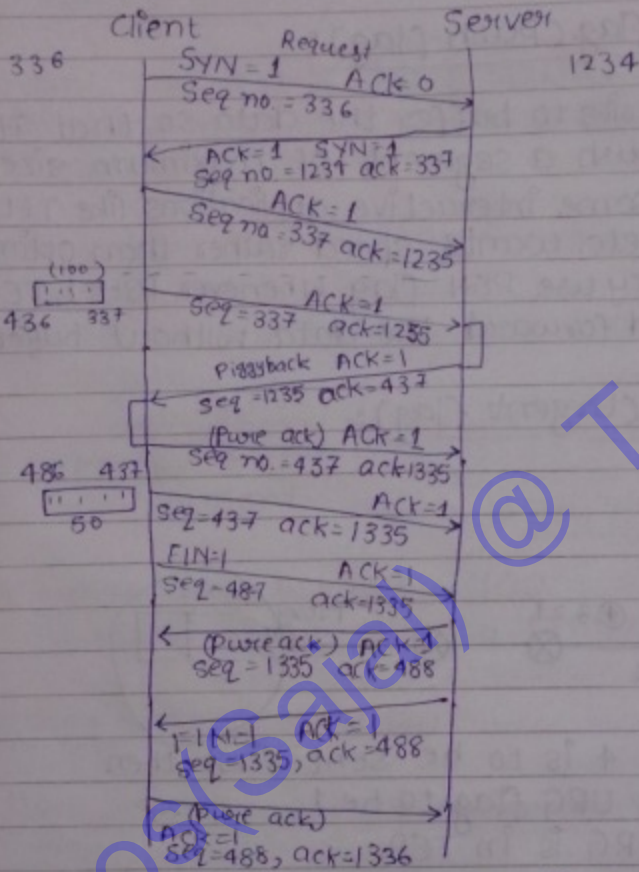 Client Server
336 Request 1234
SYN=1 ACK=0
Seq no.=336
ACK=1 SYN=1
Seq no.=1234 ack=337
ACK=1
Seq no.=337 ack=1235
(100)
436 337
ACK=1
Seq=337 ack=1235
Piggyback ACK=1
seq=1235 ack=437
(Pure ack) ACK=1
Seq no.=437 ack1335
486 437
50
ACK=1
seq=437 ack=1335
FIN=1 ACK=1
seq=487 ack=1335
(Pure ack) ACK=1
seq=1335 ack=488
FIN=1 ACK=1
seq=1335, ack=488
(Pure ack)
ACK=1
seq=488, ack=1336
(Sajal) @ T